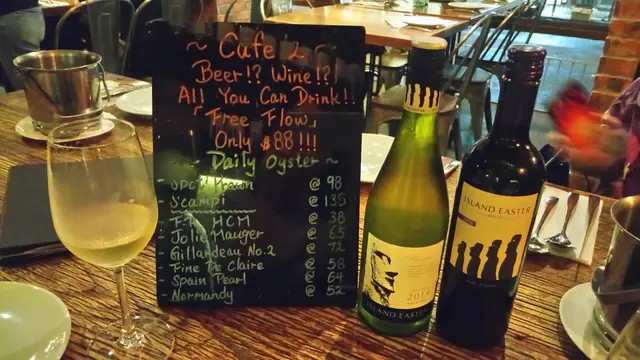 ~ Cafe 2 ~
Beer!? Wine!?
All You Can Drink!!
「Free Flow」
Only $88!!!
~ Daily Oyster ~
Spot Prawn @ 98
Scampi @ 135
HCM @ 38
Jolie Mauger @ 65
Gillardeau No.2 @ 72
Fine De Claire @ 58
Spain Pearl @ 64
Normandy @ 52
2014
ISLAND EASTER
ISLAND EASTER